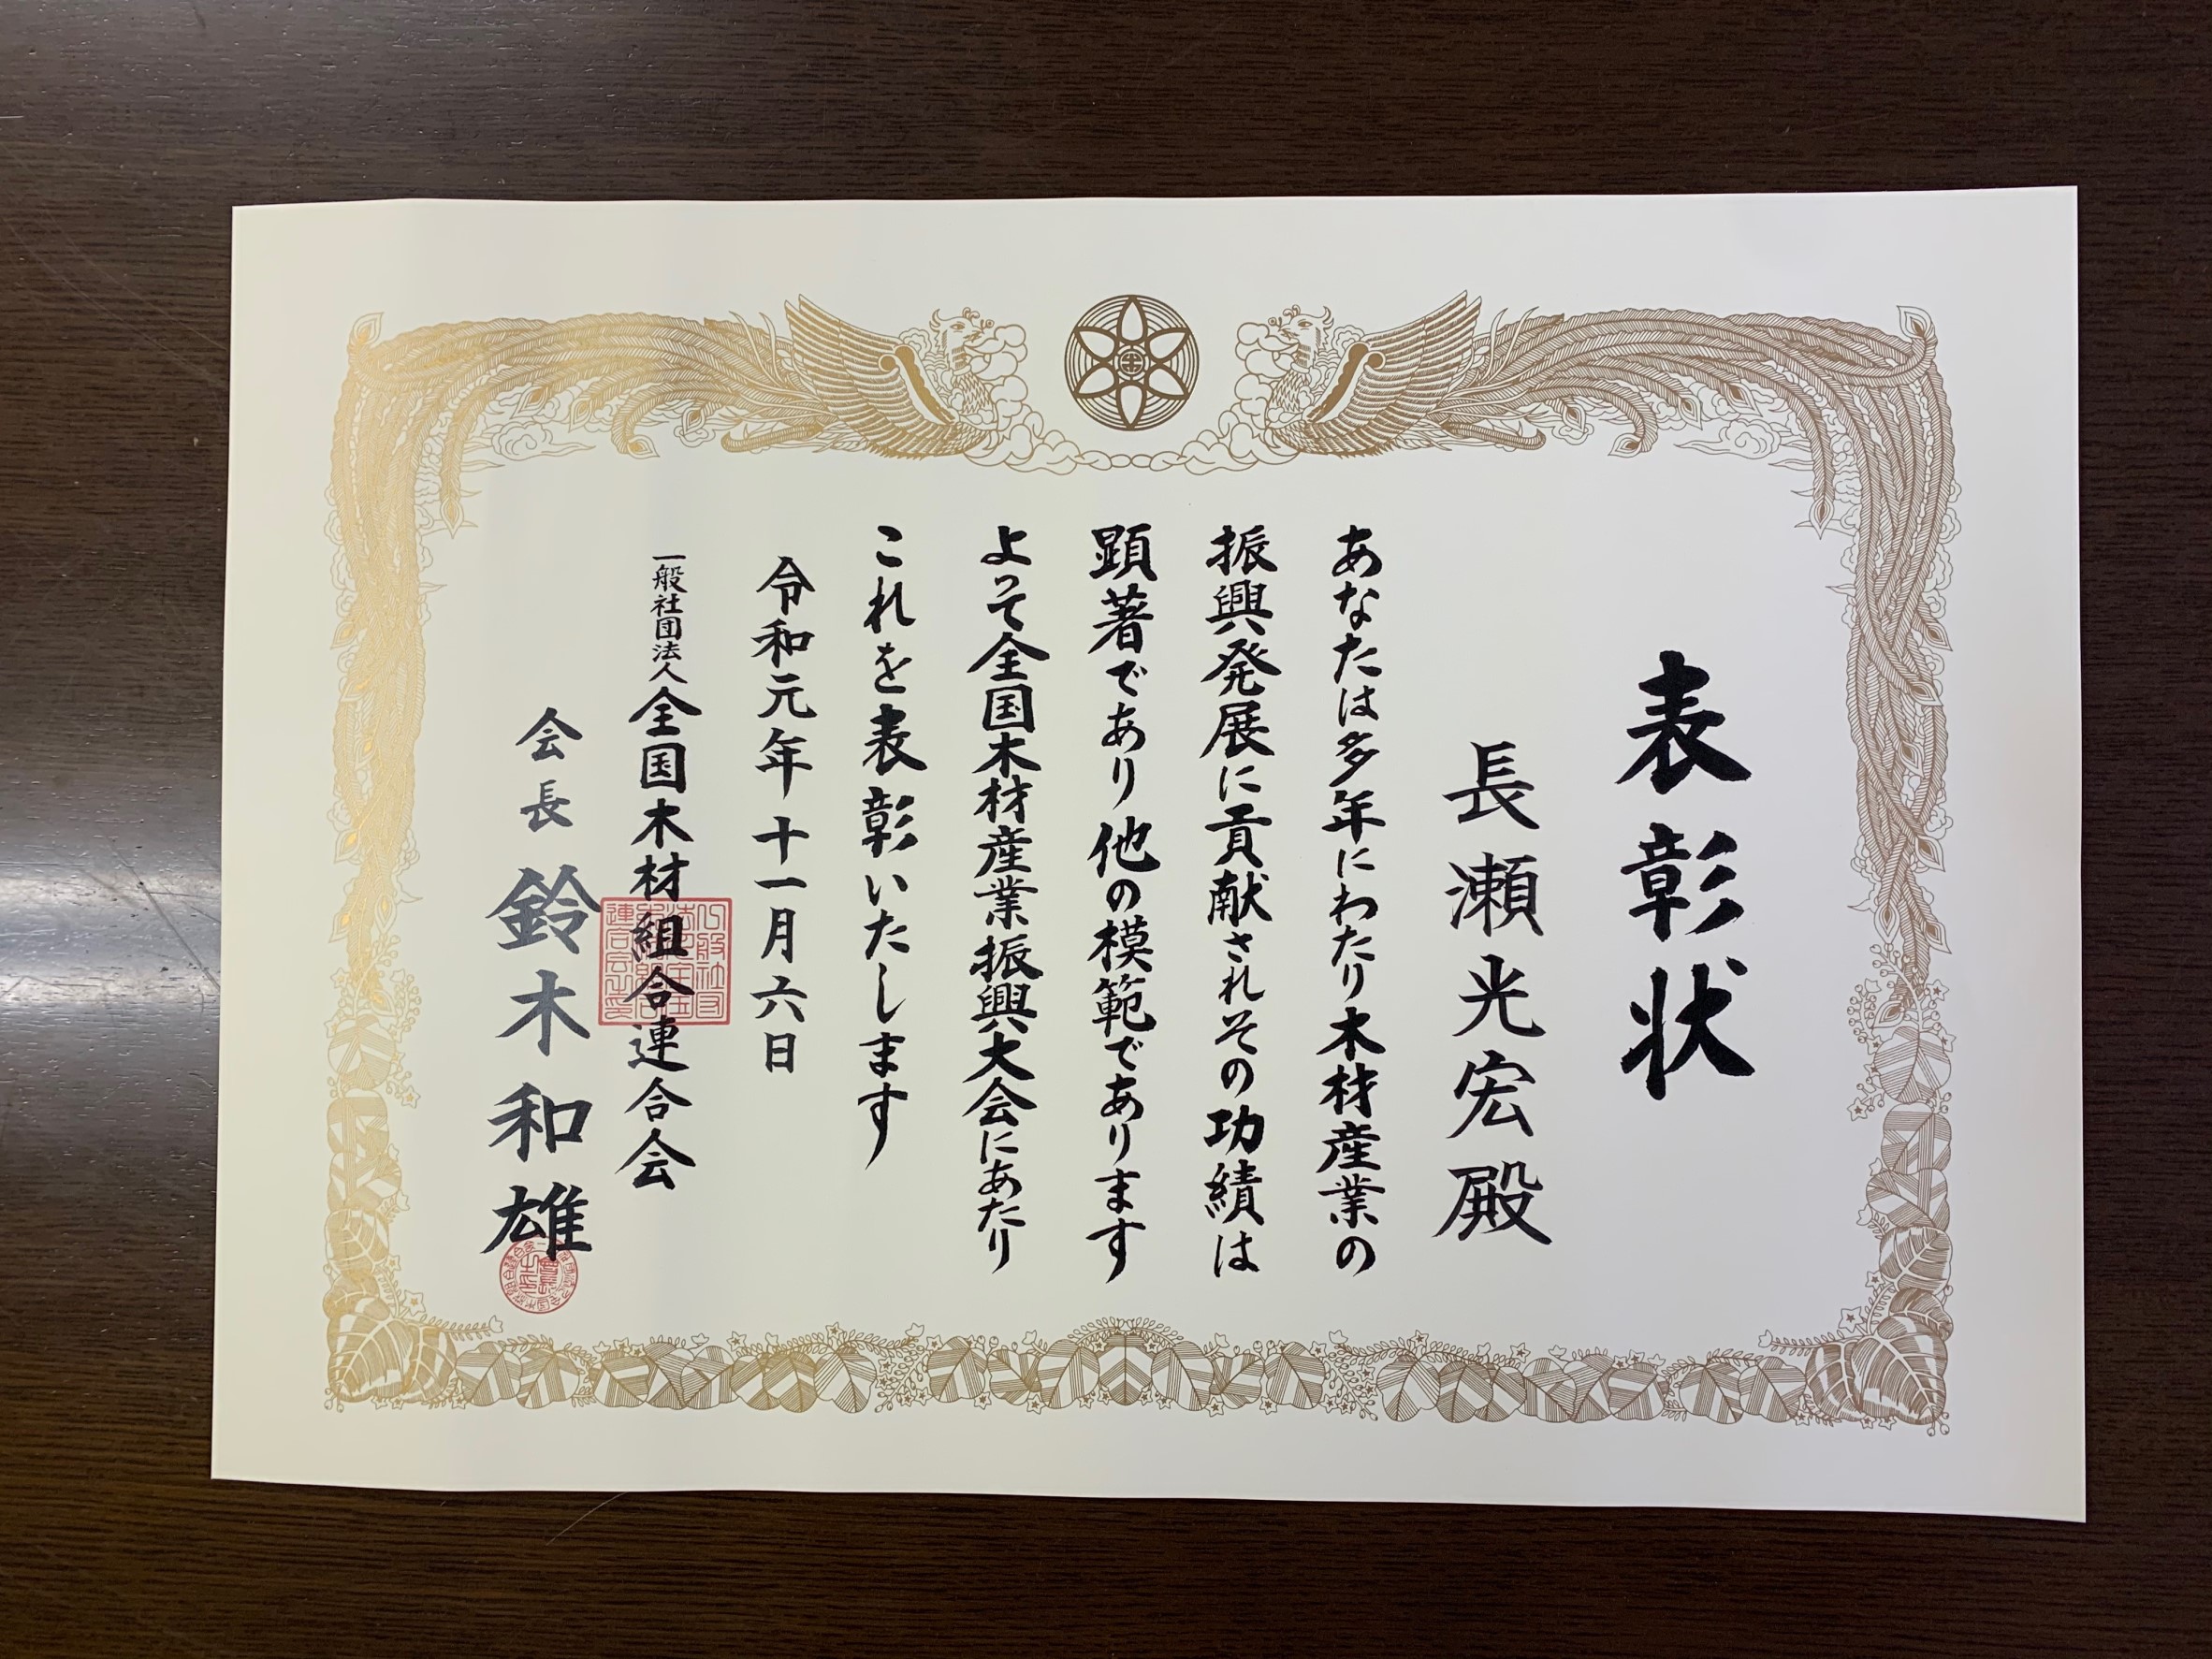 表彰状
長瀬光宏殿
あなたは多年にわたり木材産業の
振興発展に貢献されその功績は
顕著であり他の模範であります
よって全国木材産業振興大会にあたり
これを表彰いたします
令和元年十一月六日
一般社団法人全国木材組合連合会
会長 鈴木和雄